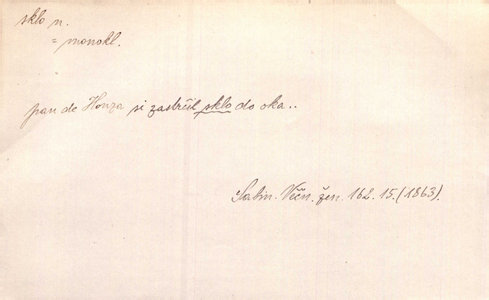 sklo n.
= monokl.
pan de Honza si zastrčil sklo do oka..
Sabin. Večn. žen. 162. 15. (1863).